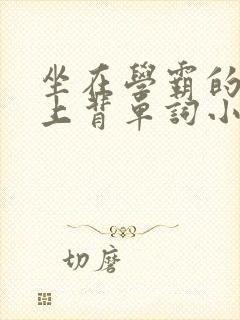 坐在學霸的
上背單詞小
切磨